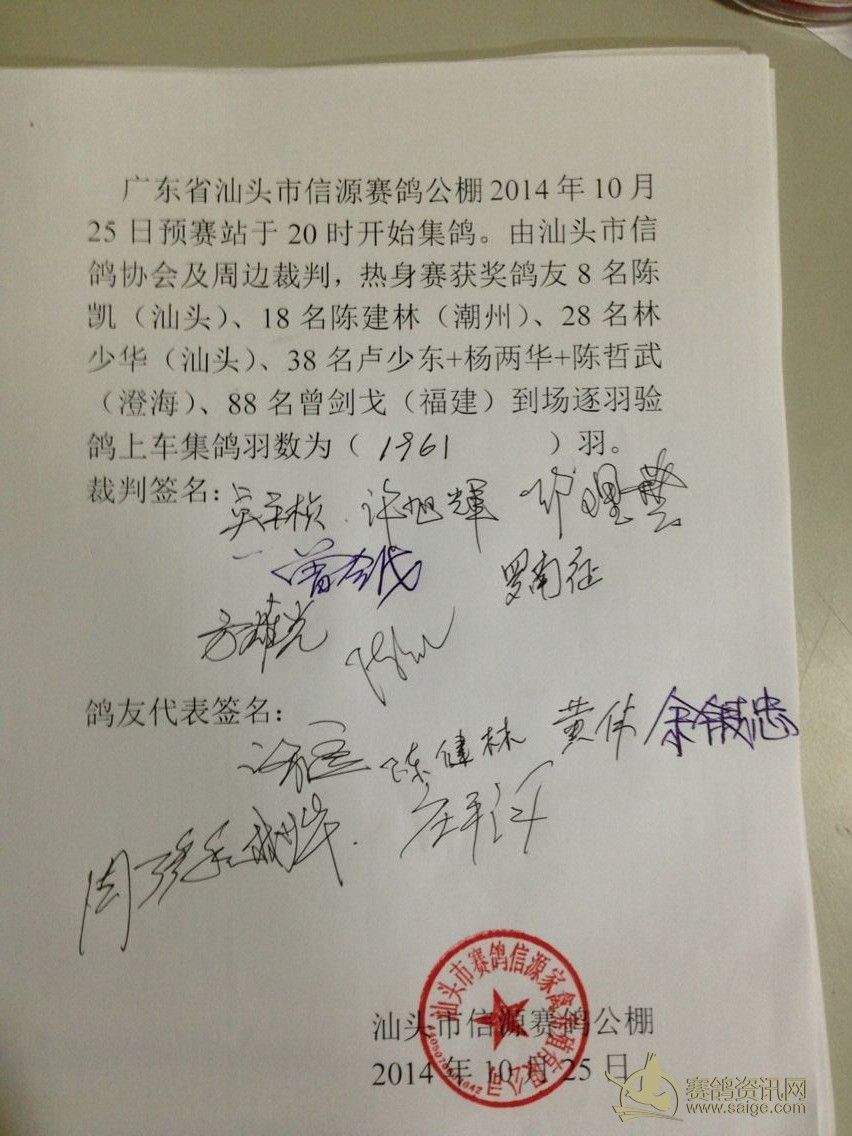 广东省汕头市信源赛鸽公棚2014年10月
25日预赛站于20时开始集鸽。由汕头市信
鸽协会及周边裁判，热身赛获奖鸽友8名陈
凯（汕头）、18名陈建林（潮州）、28名林
少华（汕头）、38名卢少东+杨两华+陈哲武
（澄海）、88名曾剑戈（福建）到场逐羽验
鸽上车集鸽羽数为（ 1961 ）羽。
裁判签名：
许旭輝
罗南征
方雄光
鸽友代表签名：
陈健林 黄伟 余镇忠
汕头市赛鸽信源家禽养殖有限公司
汕头市信源赛鸽公棚
2014年10月25日
赛鸽资讯网
www.saige.com